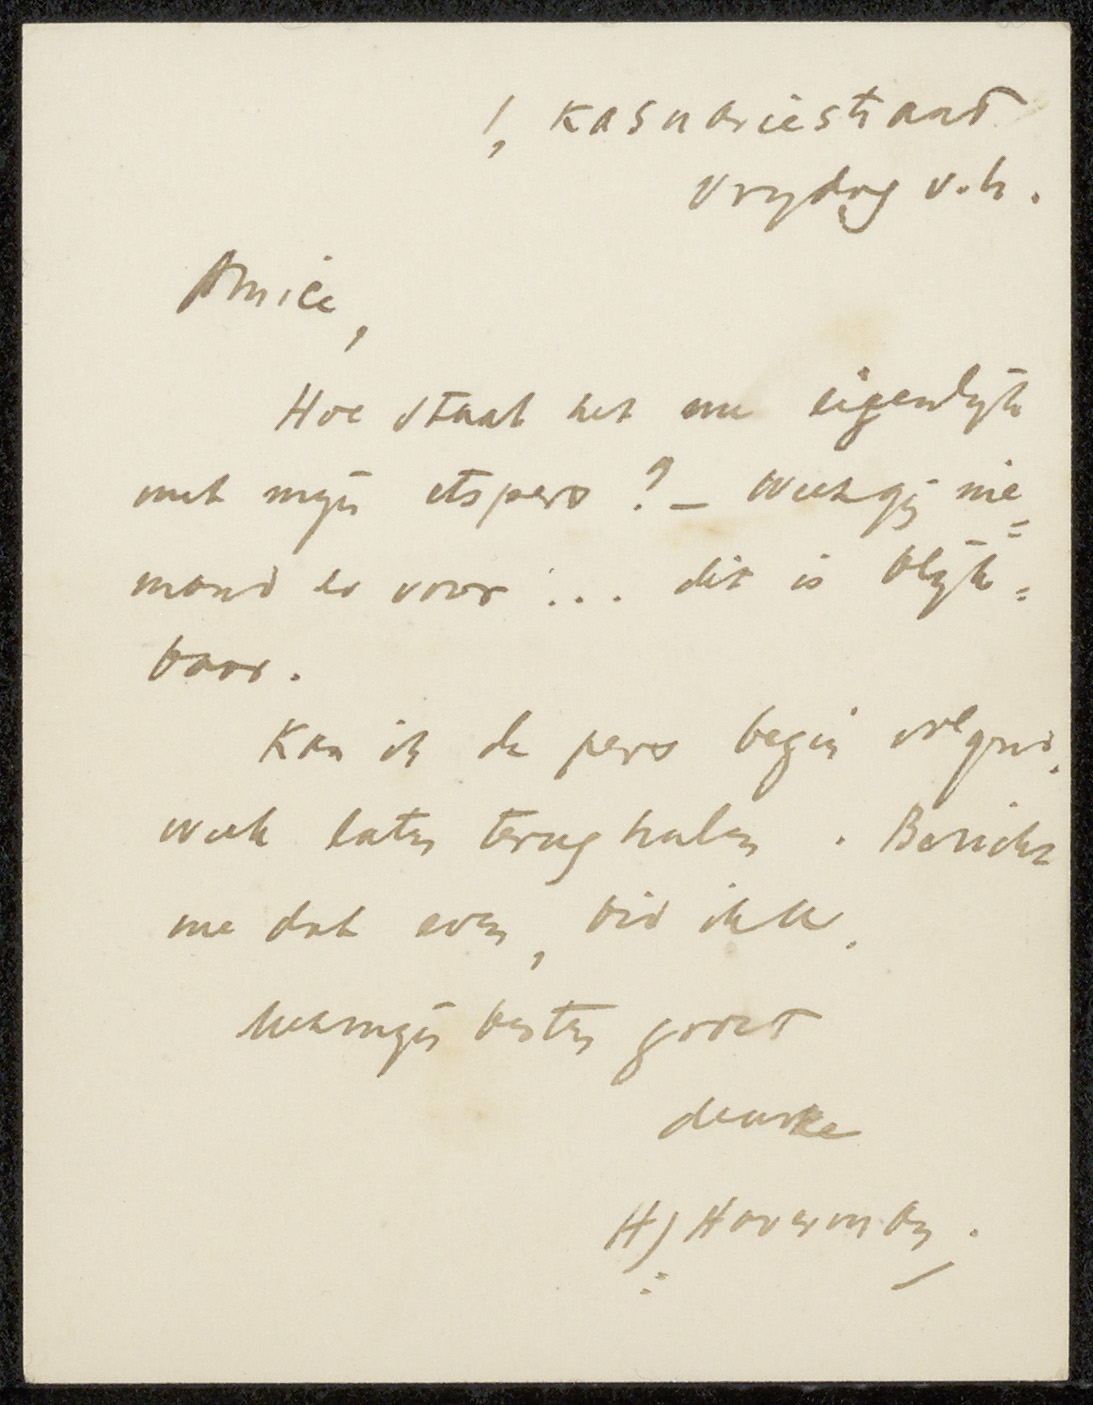 1, Kasuariestraat
Vrydag v.h.
Amice,
Hoe staat het nu eigenlijk
met mijn etspers? – Weet gij nie=
mand er voor ... dit is blijk=
baar.
Kan ik de pers begin volgend.
week laten terughalen. Bericht
me dat even, bid ik U.
Met mijn besten groet
de uwe
HJ Haverman